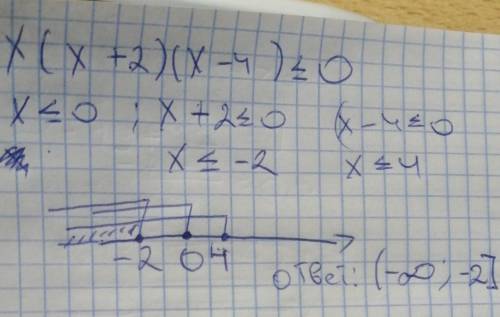 x(x+2)(x-4)≤0
x≤0 ; x+2≤0 (x-4≤0
x≤-2 x≤4
-2 0 4
ответ: (-∞; -2]